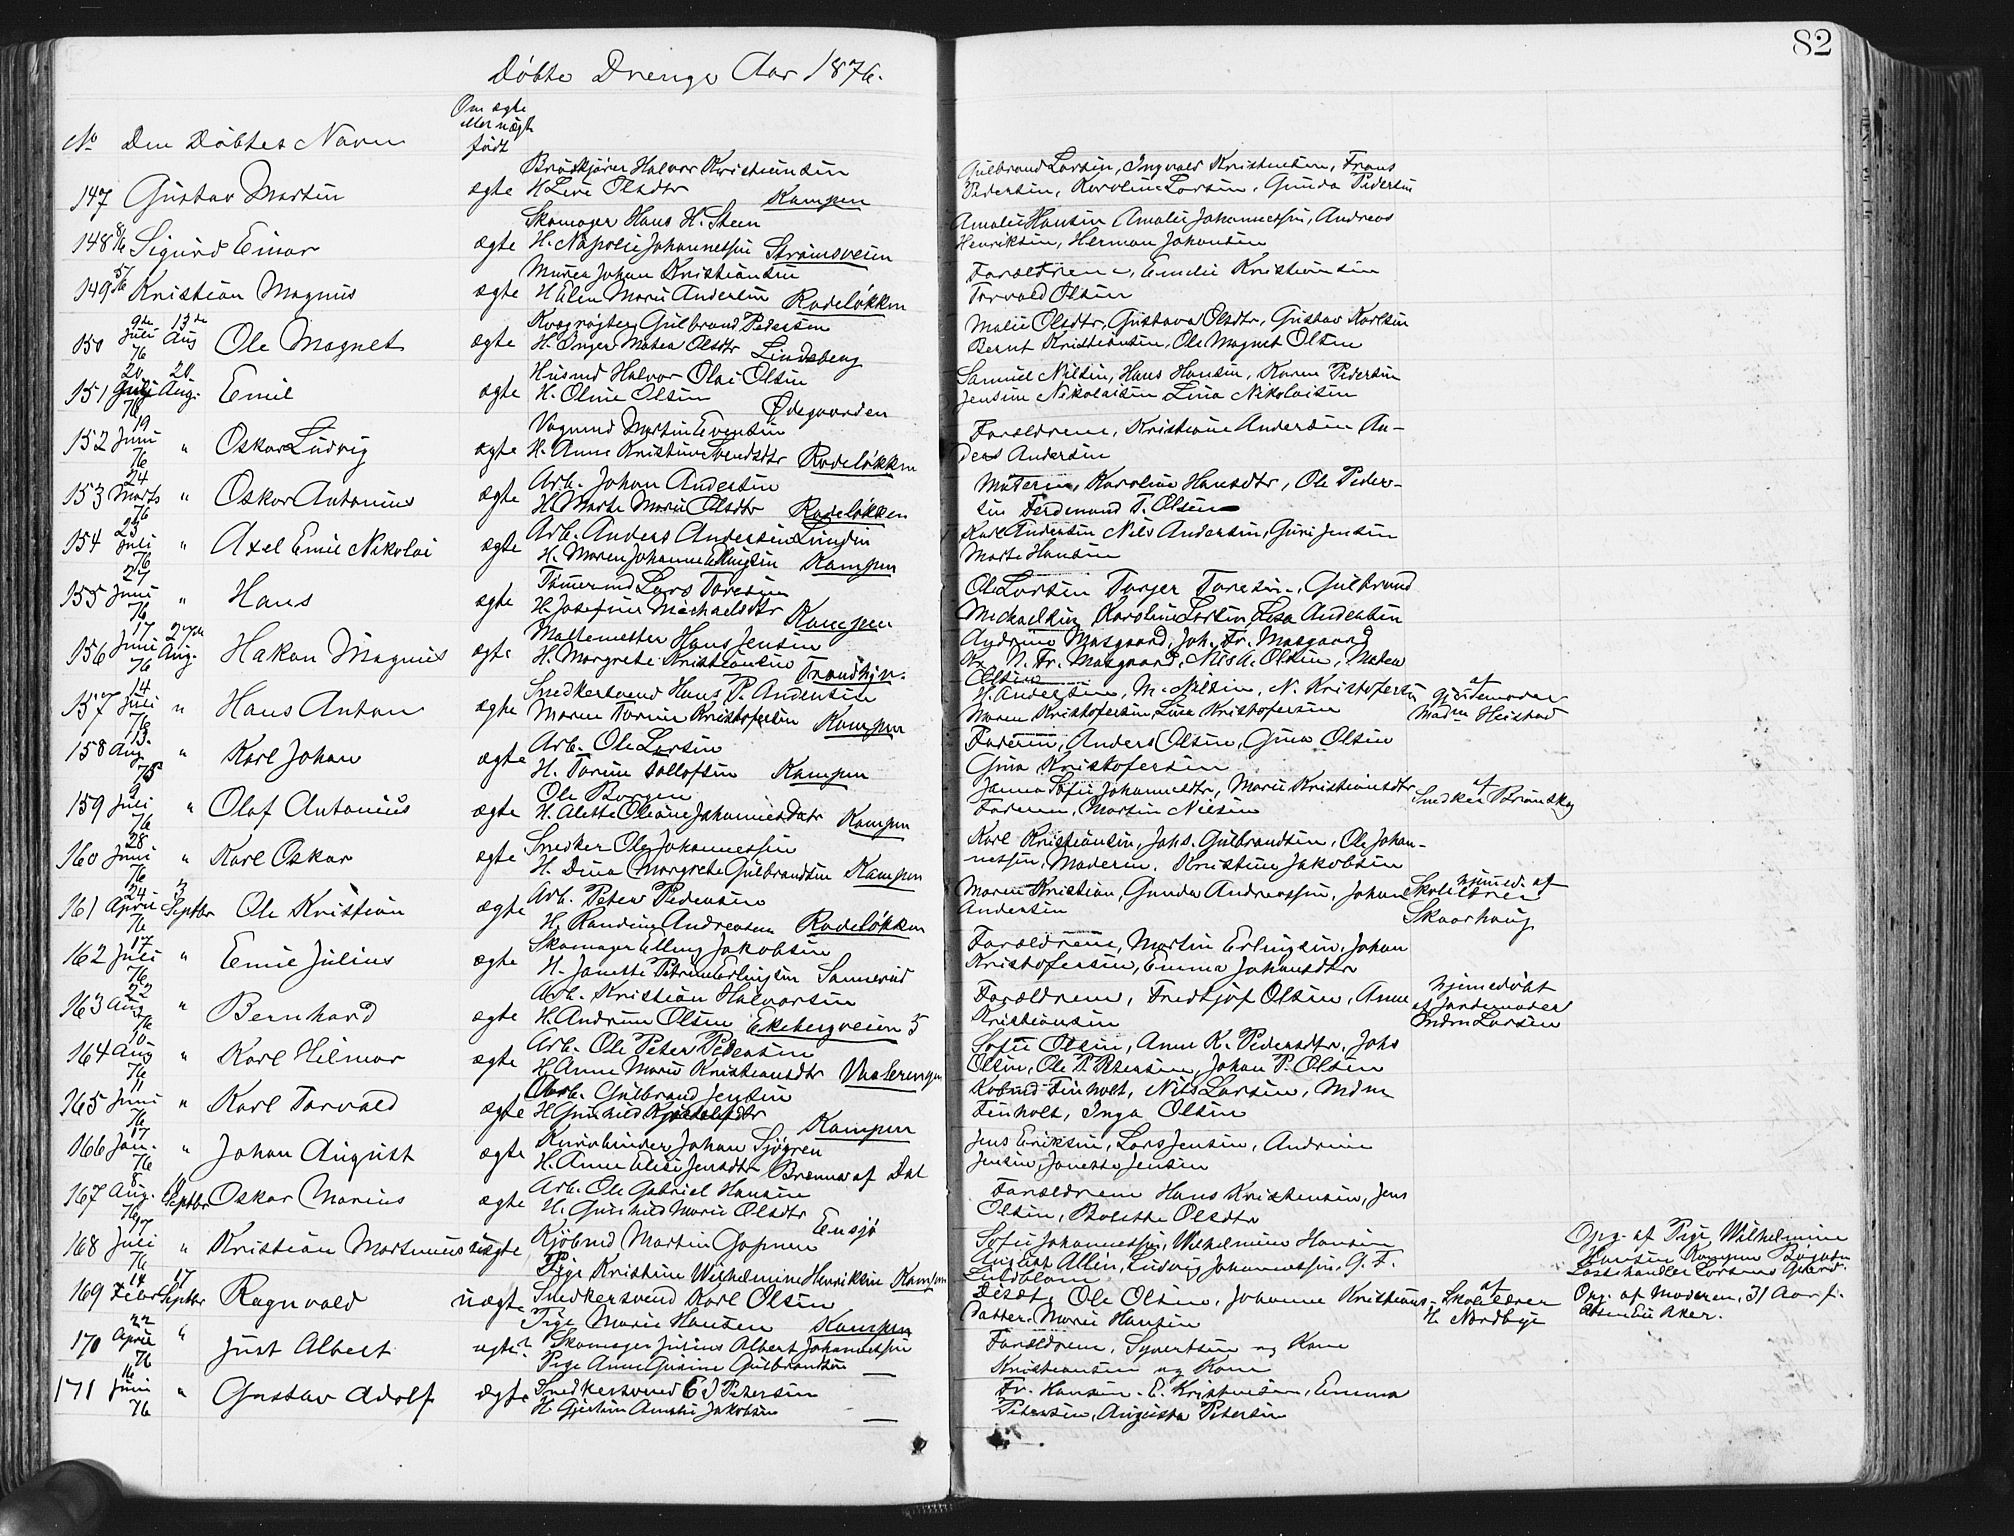 Døbte Drenge Aar 1876.
82
No Den Døbtes Navn
Om ægte
eller uægte
født
147 Gustav Martin
ægte
Halvor Kristiansen
H. Olsdtr
Kampen
Gulbrand Larsen, Ingvald Kristensen, Frans
Pedersen, Karoline Larsen, Gunda Pedersen
148 8/6 Sigurd Einar
ægte
Skomager Hans H. Steen
H. Johannessen Strømsveien
Amalie Hansen Amalie Johannessen, Andreas
Henriksen, Herman Johansen
149 5/6 Kristian Magnus
ægte
Murer Johan Kristiansen
H Elen Marie Andersen Rodeløkken
Forældrene, Emilie Kristiansen
Torvald Olsen
150 9de Juli 76 13de Aug Ole Magnet
ægte
Gulbrand Pedersen
H. Inger Matea Olsdtr Lindeberg
Malie Olsdtr, Gustava Olsdtr, Gustav Karlsen
Bernt Kristiansen, Ole Magnet Olsen
151 20 Juli 76 20 Aug. Emil
ægte
Husmd Halvor Olai Olsen
H. Oline Olsen
Ødegaarden
Samuel Nilsen, Hans Hansen, Karen Pedersen
Jensine Nikolaisen Lina Nikolaisen
152 19 Juni 76 " Oskar Ludvig
ægte
Vognmd Martin Evensen
H. Anne Kristine Rodeløkken
Forældrene, Kristiane Andersen An-
ders Andersen
153 24 Marts 76 " Oskar Antonius
ægte
Arb. Johan Andersen
H. Marte Marie Olsdtr Rodeløkken
Moderen, Karoline Hansdtr, Ole Peder-
sen Ferdinand T. Olsen
154 23 Juli 76 " Axel Emil Nikolai
ægte
Arb. Anders Andersen Lundin
H. Maren Johanne Ellingsen Kampen
Karl Andersen Nils Andersen, Guri Jensen
Marte Hansen
155 27 Juni 76 " Hans
ægte
Tømermd Lars Toresen
H. Josefine Michaelsdtr Kampen
Ole Larsen Torger Toresen, Gulbrand
Michaelsen Karoline Larsen Lisa Andersen
156 17 Juni 76 27de Aug. Hakon Magnus
ægte
Maltemester Hans Jensen
H. Margrete Kristiansen
Andrine Masgaard, Joh. Fr. Masgaard
N. Fr. Masgaard, Nils A. Olsen, Matea
Olsen
157 14 Juli 76 " Hans Anton
ægte
Snedkersvend Hans P. Andersen
Maren Torine Kristofersen Kampen
H. Andersen, M. Nilsen, N. Kristofersen
Maren Kristofersen, Lina Kristofersen
af
Gjordemoder
Madm Heistad
158 13. Aug 75 " Karl Johan
ægte
Arb. Ole Larsen
H. Torine Tollofsen Kampen
Faderen, Anders Olsen, Gina Olsen
Gina Kristofersen
159 9 Juli 76 " Olaf Antonius
ægte
Ole Borgen
H. Alette Oleane Johannesdatr Kampen
Janna Sofie Johannesdtr, Marie Kristiansdtr
Faderen, Martin Nielsen
af
Snedker
160 28 Juni 76 " Karl Oskar
ægte
Snedker Ole Johannessen
H. Dina Margrete Gulbrandsen Kampen
Karl Kristiansen, Johs. Gulbrandsen, Ole Johan-
nessen, Moderen, Kristine Jakobsen
161 24 April 76 3 Septbr Ole Kristian
ægte
Arb. Peter Pedersen
H. Randine Andreasen Rodeløkken
Maren Kristian, Gunda Andreassen, Johan
Andersen
hjemmed. af
Skolelærer
Skaarhaug
162 17 Juli 76 " Emil Julius
ægte
Skomager Elling Jakobsen
H. Janette Petrine Erlingsen
Forældrene, Martin Erlingsen, Johan
Kristofersen, Emma Johansdtr
163 22 Aug 76 " Bernhard
ægte
Arb. Kristian Halvorsen
H. Andrine Olsen Ekebergveien 5
Forældrene, Fredtjof Olsen, Anne
Kristiansen
hjemmedøbt
af Jordemoder
Mdm Larsen
164 10 Aug 76 " Karl Hilmar
ægte
Arb. Ole Peter Pedersen
H. Anne Marie Kristiansdtr Vaalerengen
Sofie Olsen, Anne K. Pedersdtr, Johs
Olsen, Ole P. Petersen, Johan P. Olsen
165 11 Juni 76 " Karl Torvald
ægte
Arb. Gulbrand Jensen
H Gunhild
Kampen
Finholt, Nils Larsen, Mdm
Finholt, Inga Olsen
166 17 Jan. 76 " Johan August
ægte
Kurvbinder Johan Sjøgren
H. Anne Elise Jensdtr Brenna af Dal
Jens Eriksen, Lars Jensen, Andrine
Jensen, Janette Jensen
167 8 Aug. 76 Septbr Oskar Marius
ægte
Arb. Ole Gabriel Hansen
H. Gunhild Marie Olsdtr
Ensjø
Forældrene Hans Kristensen, Jens
Olsen, Bolette Olsdtr
168 17 Juli 76 " Kristian Martinius
uægte
Kjøbmd Martin
Pige Kristine Wilhelmine Henriksen Kampen
Sofie Johannessen, Wilhelmine Hansen
August Allen, Ludvig Johannessen, G. F.
Lindblom
Opg. af Pige Wilhelmine
Hansen Kampen
169 14 Febr 17 Septbr Ragnvald
uægte
Snedkersvend Karl Olsen
Pige Marie Hansen Kampen
Ole Olsen, Johanne Kristians-
datter, Marie Hansen
af
Skolelærer
H. Nordbye
Opg. af Moderen, 31 Aar f.
Aker.
170 22 April 76 " Just Albert
ugte?
Skomager Julius Albert Johannessen
Pige Anne Gurine Gulbrandsen
Forældrene, Syvertsen og Kone
Kristiansen og Kone
171 16 Juni 76 " Gustav Adolf
ægte
Snedkersvend C J Petersen
H. Amalie Jakobsen
Fr. Hansen. E. Kristensen, Emma
Petersen, Augusta Petersen